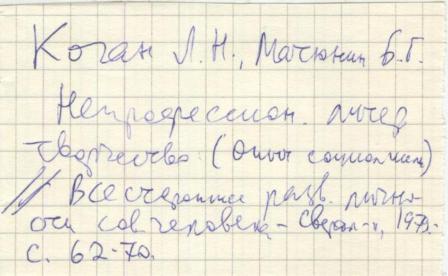 Коган Л.Н., Мачюнин Б.Г.
Непрофессион. литер
творчество (опыт социол.
// Всестороннее разв. лично-
сти сов человека, – Свердл-к, 1973.-
С. 62-70.